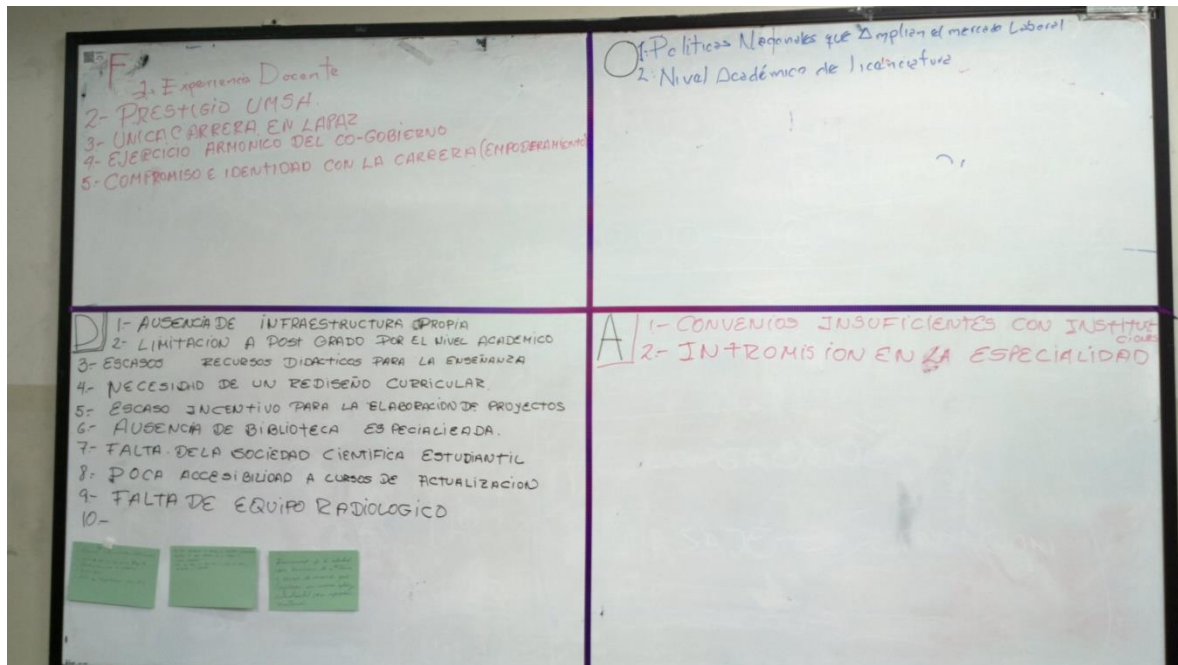 F
1. Experiencia Docente
2- PRESTIGIO UMSA.
3- UNICA CARRERA EN LAPAZ
4- EJERCICIO ARMONICO DEL CO-GOBIERNO
5- COMPROMISO E IDENTIDAD CON LA CARRERA (EMPODERAMIENTO)
O
1. Políticas Nacionales que Amplian el mercado Laboral
2. Nivel Académico de licenciatura
D
1- AUSENCIA DE INFRAESTRUCTURA PROPIA
2- LIMITACION A POST GRADO POR EL NIVEL ACADÉMICO
3- ESCASOS RECURSOS DIDACTICOS PARA LA ENSEÑANZA
4- NECESIDID DE UN REDISEÑO CURRICULAR
5- ESCASO INCENTIVO PARA LA ELABORACION DE PROYECTOS
6- AUSENCIA DE BIBLIOTECA ESPECIALIZADA.
7- FALTA DE LA SOCIEDAD CIENTIFICA ESTUDIANTIL
8- POCA ACCESIBILIDAD A CURSOS DE ACTUALIZACION
9- FALTA DE EQUIPO RADIOLOGICO
10-
A
1- CONVENIOS INSUFICIENTES CON INSTITU
CIONES
2- INTROMISION EN LA ESPECIALIDAD